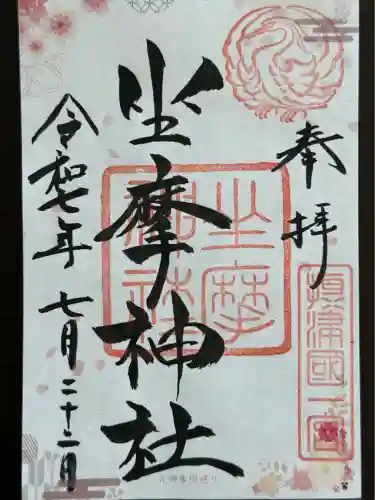 奉拝
摂津國一宮
坐摩神社
坐摩神社
令和七年七月二十二日